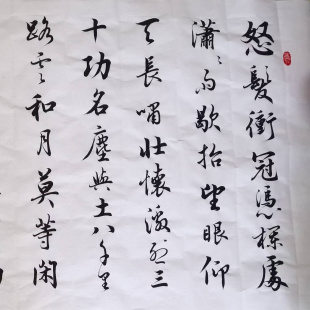 怒髮衝冠憑欄處
瀟〻雨歇抬望眼仰
天長嘯壯懷激烈三
十功名塵與土八千里
路雲和月莫等閑